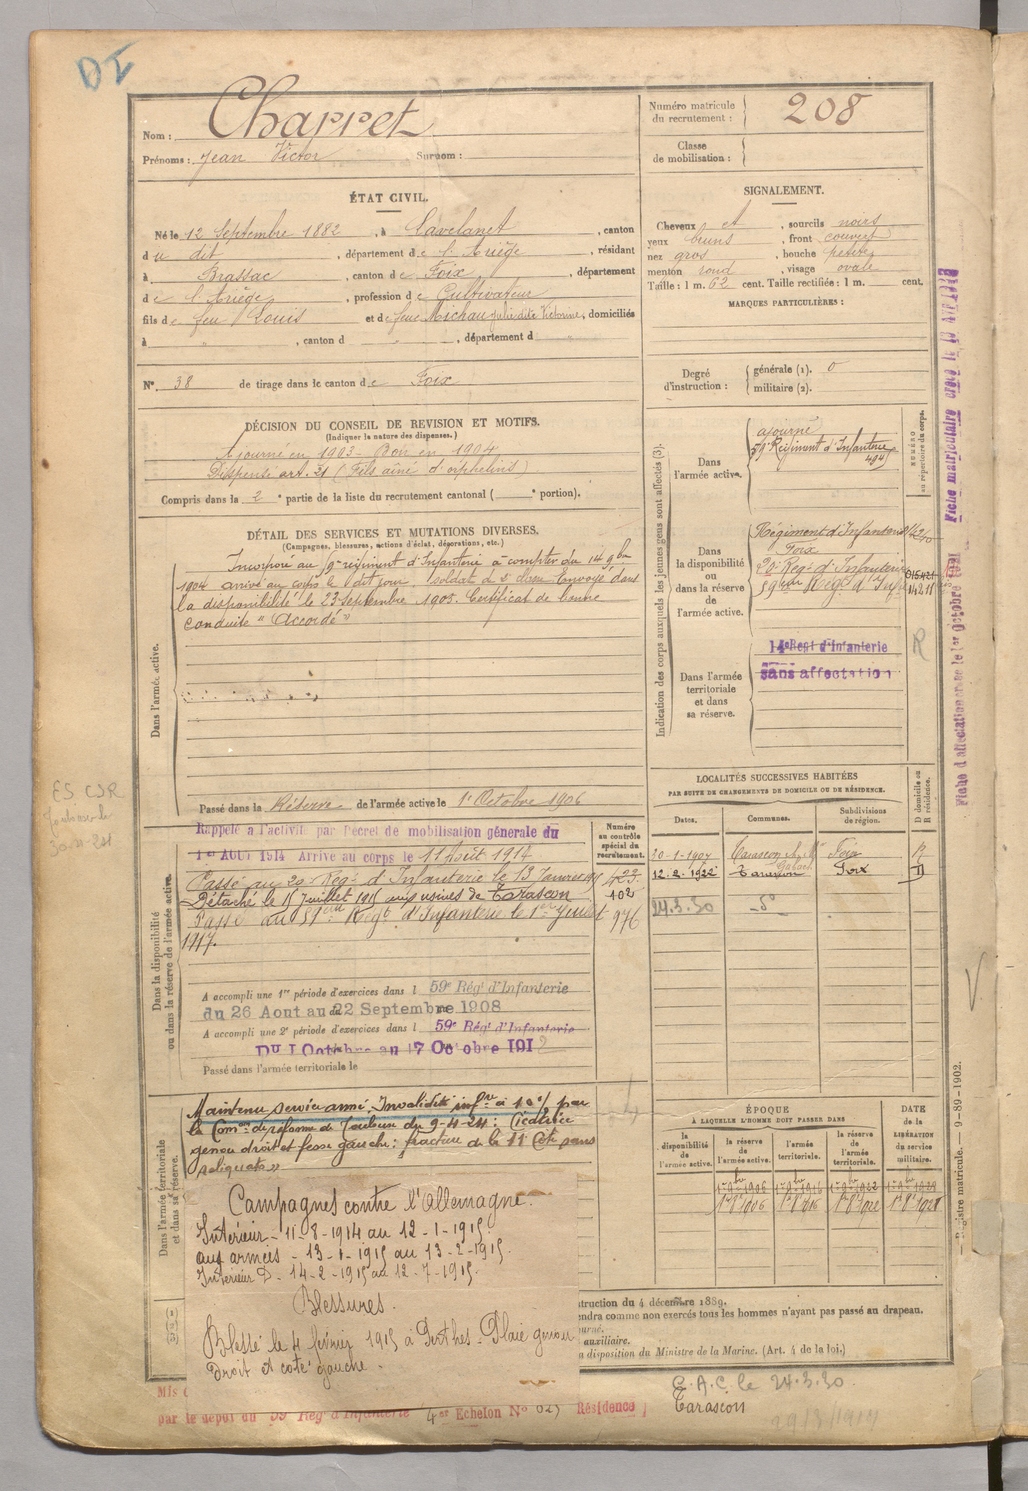 DI
Nom : Charret
Prénoms : Jean Victor Surnom :
Numéro matricule du recrutement : 208
Classe de mobilisation :
ÉTAT CIVIL.
Né le 12 Septembre 1882, à Lavelanet, canton
du dit, département de l'Ariège, résidant
à Brassac, canton de Foix, département
de l'Ariège, profession de Cultivateur
fils de feu Louis et de feue Michau Julie dite Victorine, domiciliés
à " , canton d " , département d "
N° 38 de tirage dans le canton de Foix
SIGNALEMENT.
Cheveux et , sourcils noirs
yeux bruns , front couvert
nez gros , bouche petite
menton rond , visage ovale
Taille : 1 m. 62 cent. Taille rectifiée : 1 m. cent.
MARQUES PARTICULIÈRES :
Degré d'instruction : générale (1). 0
militaire (2).
DÉCISION DU CONSEIL DE REVISION ET MOTIFS.
(Indiquer la nature des dispenses.)
Ajourné en 1903 - Bon en 1904
Dispensé art. 21 (Fils aîné d'orphelins)
Compris dans la 2e partie de la liste du recrutement cantonal ( e portion).
DÉTAIL DES SERVICES ET MUTATIONS DIVERSES.
(Campagnes, blessures, actions d'éclat, décorations, etc.)
Dans l'armée active.
Incorporé au 59e régiment d'Infanterie à compter du 14 9bre
1904 arrivé au corps le dit jour, soldat de 2e classe. Envoyé dans
la disponibilité le 23 Septembre 1905. Certificat de bonne
conduite "Accordé"
Passé dans la Réserve de l'armée active le 1er Octobre 1906
Indication des corps auxquels les jeunes gens sont affectés (3).
NUMÉRO au répertoire du corps.
Dans l'armée active.
ajourné
59e Régiment d'Infanterie
494
Dans la disponibilité ou dans la réserve de l'armée active.
Régiment d'Infanterie
Foix
20e Régt d'Infanterie
59ème Régt d'Infie
Dans l'armée territoriale et dans sa réserve.
14e Regt d'Infanterie
sans affectation
R
Fiche matriculaire créée le
Fiche d'affectation créée le 1er octobre
ES CSR
LOCALITÉS SUCCESSIVES HABITÉES
PAR SUITE DE CHANGEMENTS DE DOMICILE OU DE RÉSIDENCE.
Dates. Communes. Subdivisions de région. D domicile ou R résidence.
20-1-1907 Tarascon Foix R
12-2-1922 Tarascon Foix D
24.3.30 -do-
Dans la disponibilité ou dans la réserve de l'armée active.
Numéro au contrôle spécial du recrutement.
Rappelé à l'activité par Décret de mobilisation générale du
1er AOUT 1914 Arrivé au corps le 11 Août 1914
Passé au 20e Régt d'Infanterie le 13 Janvier 1915
Détaché le 15 Juillet 1915 aux usines de Tarascon
Passé au 59ème Régt d'Infanterie le 1er Juillet
1917.
423
102
976
A accompli une 1re période d'exercices dans l 59e Régt d'Infanterie
du 26 Aout au 22 Septembre 1908
A accompli une 2e période d'exercices dans l 59e Régt d'Infanterie
DU 1 Octobre au 17 Octobre 1912
Passé dans l'armée territoriale le
Dans l'armée territoriale et dans sa réserve.
Maintenu service armé. Invalidité infre à 10% par
la Comon de réforme de Toulouse du 9-4-24: Cicatrice
genou droit et fesse gauche; fracture de la 11e Côte sans
reliquats »
ÉPOQUE
À LAQUELLE L'HOMME DOIT PASSER DANS
la disponibilité de l'armée active. la réserve de l'armée active. l'armée territoriale. la réserve de l'armée territoriale.
DATE de la LIBÉRATION du service militaire.
Campagnes contre l'Allemagne.
Intérieur - 11-8-1914 au 12-1-1915
aux armées - 13-1-1915 au 13-2-1915.
Intérieur D - 14-2-1915 au 12-7-1915.
Blessures.
Blessé le 4 février 1915 à Perthes - Plaie genou
droit et côté gauche.
struction du 4 décembre 1889.
endra comme non exercés tous les hommes n'ayant pas passé au drapeau.
auxiliaire.
a disposition du Ministre de la Marine. (Art. 4 de la loi.)
Registre matricule. — 9-89-1902.
Mis
par le dépôt du 59 Reg d'Infanterie 4er Echelon N° Résidence
C.A.C. le 24.3.30.
Tarascon